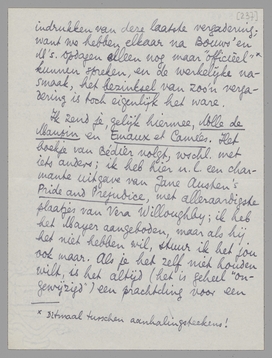 [237]
indrukken van deze laatste vergadering;
want we hebben elkaar na Bouws' en
M's. opdagen alleen nog maar "officieel"*
kunnen spreken, en de werkelijke na-
smaak, het bezinksel van zoo'n verga-
dering is toch eigenlijk het ware.
Ik zend je, gelijk hiermee, Mlle de
Maupin en Emaux et Camées. Het
boekje van Bédier volgt, wschl. met
iets anders; ik heb hier n.l. een char-
mante uitgave van Jane Austen's
Pride and Prejudice, met alleraardigste
plaatjes van Vera Willoughby; ik heb
het Mayer aangeboden, maar als hij
het niet hebben wil, stuur ik het jou
ook maar. Als je het zelf niet houden
wilt, is het altijd (het is geheel "on-
gewijzigd") een prachtding voor een
* ditmaal tusschen aanhalingsteekens!